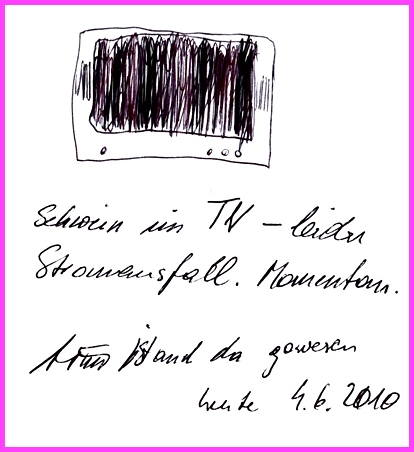 Schwein im TV – leider
Stromausfall. Momentan.
da gewesen
heute 4.6.2010